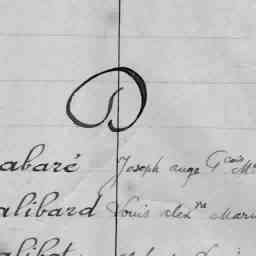 D
abaré Joseph auge Gçois
alibard Louis alexre Mari